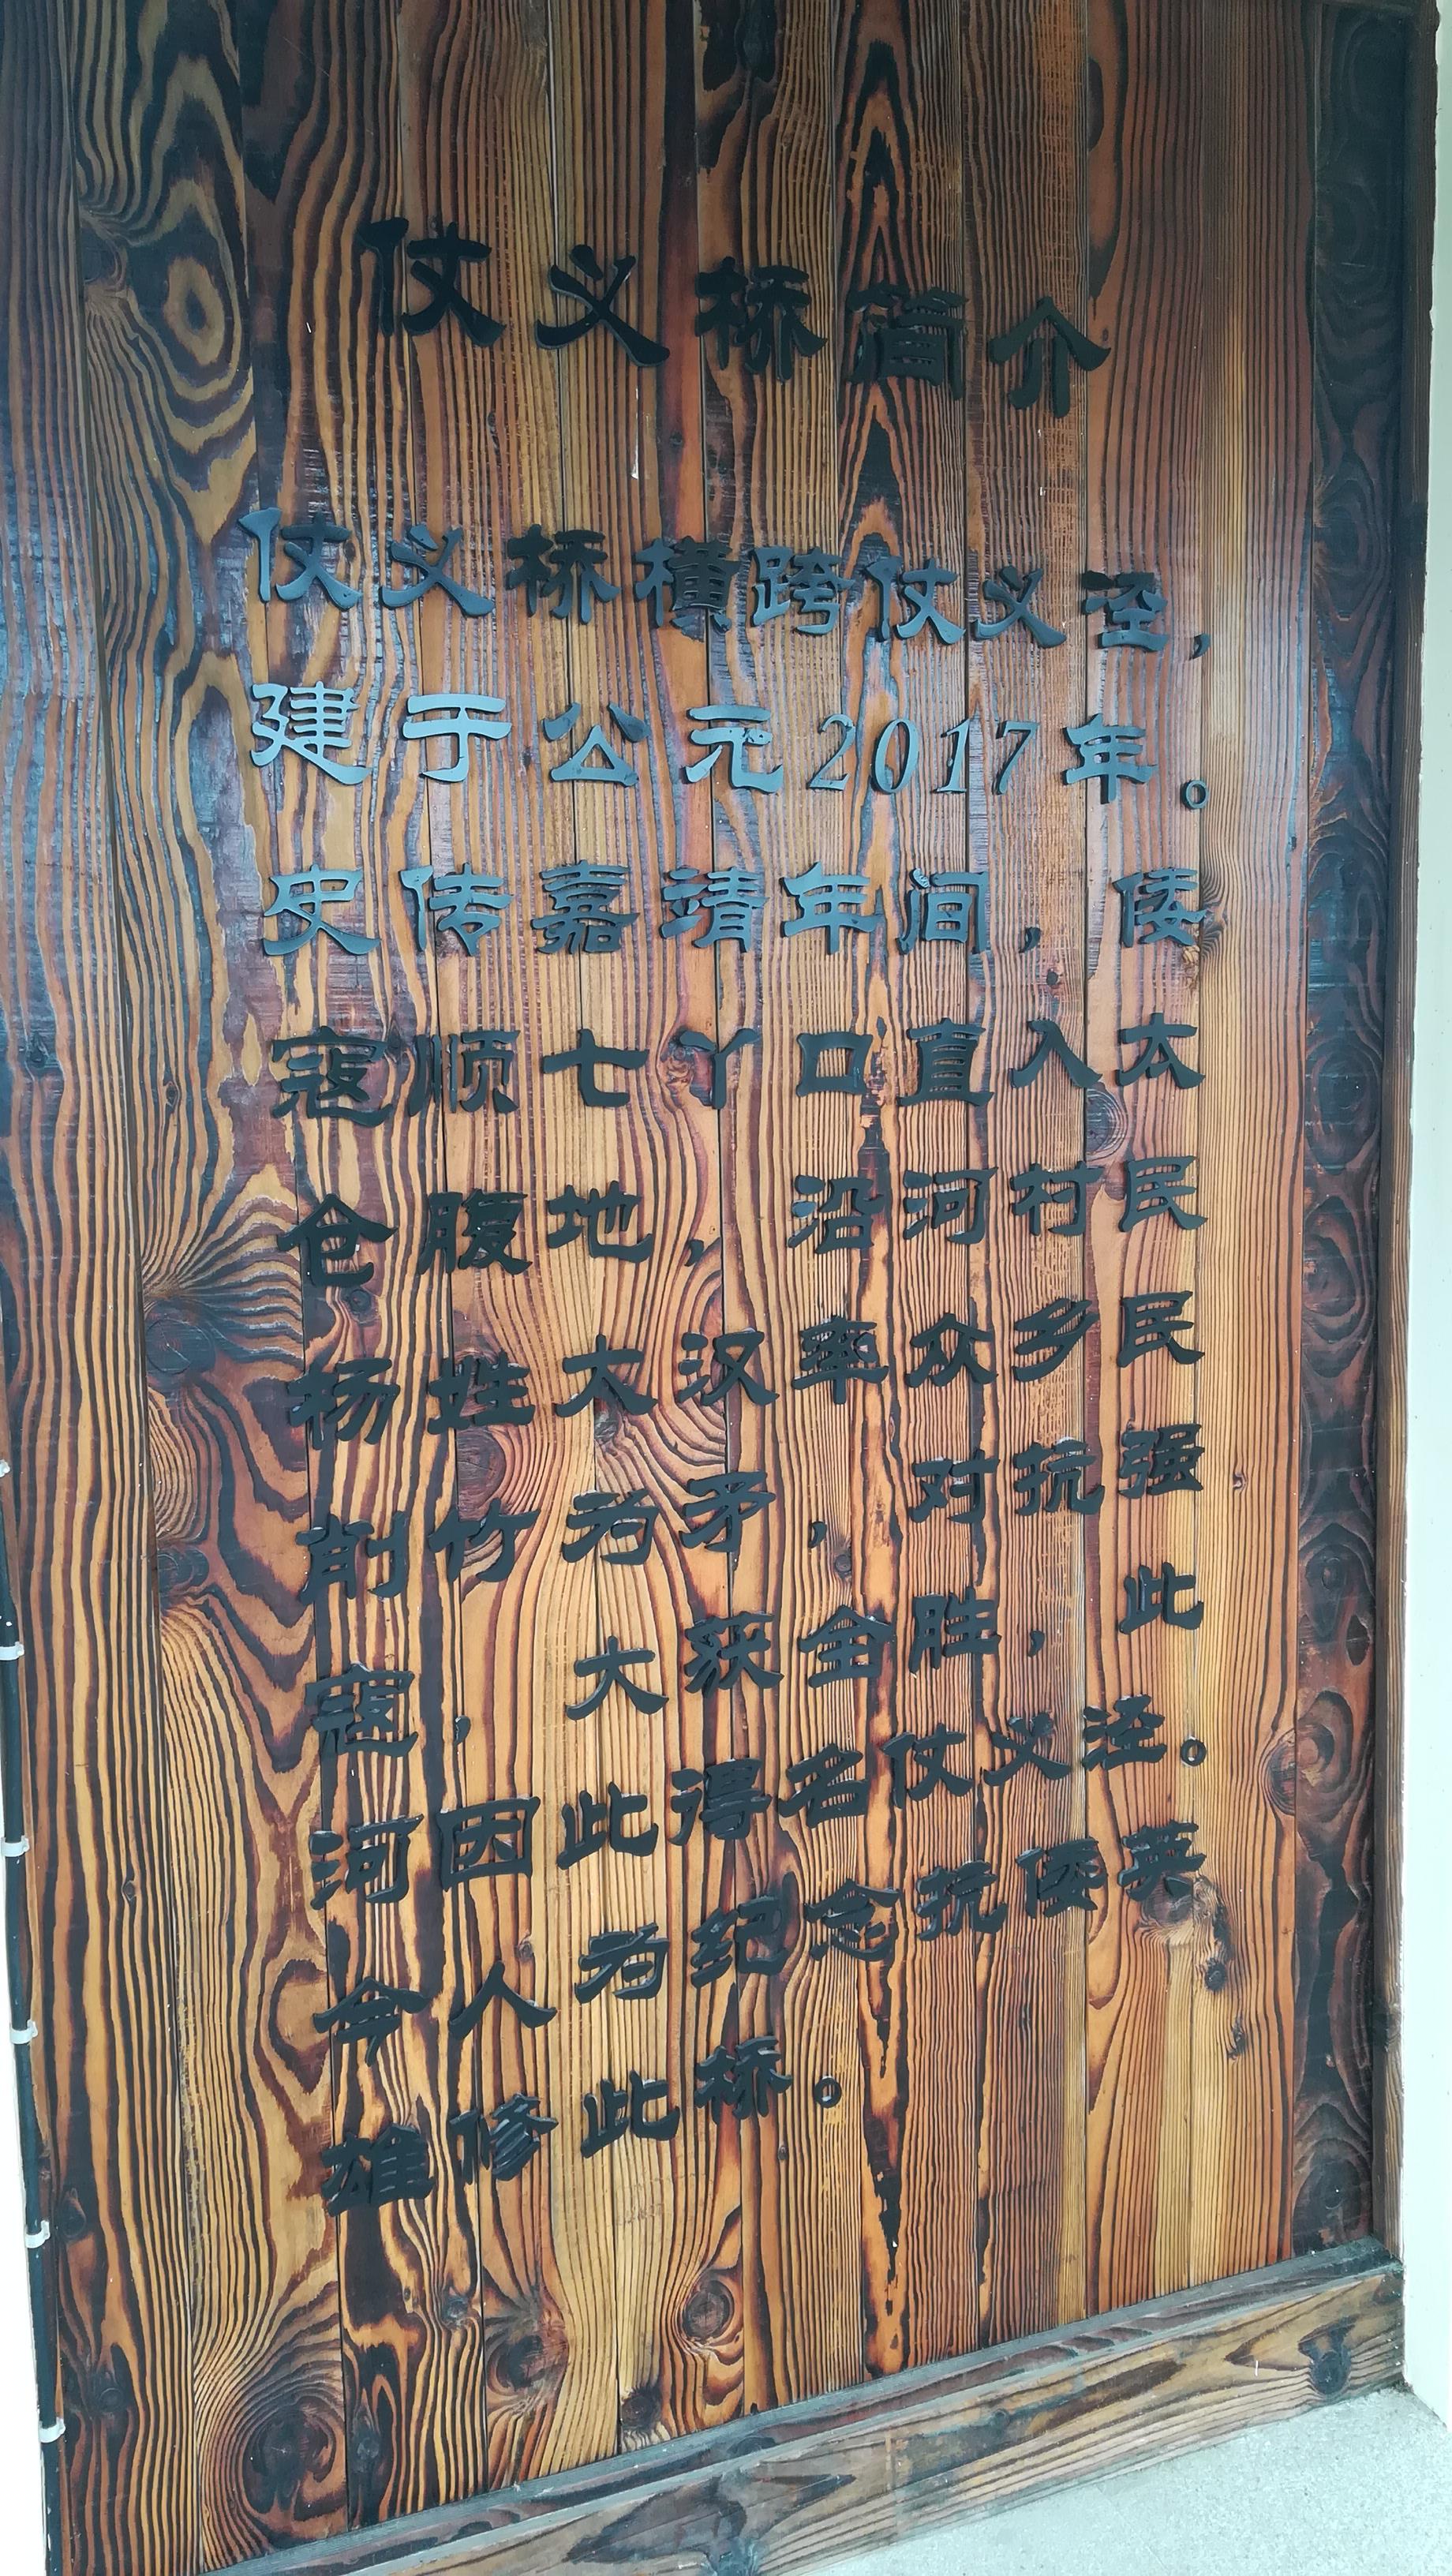 仗义桥简介
仗义桥横跨仗义泾，
建于公元2017年。
史传嘉靖年间，倭
寇顺七丫口直入太
仓腹地，沿河村民
杨姓大汉率众乡民
削竹为矛，对抗强
寇，大获全胜，此
河因此得名仗义泾。
今人为纪念抗倭英
雄修此桥。